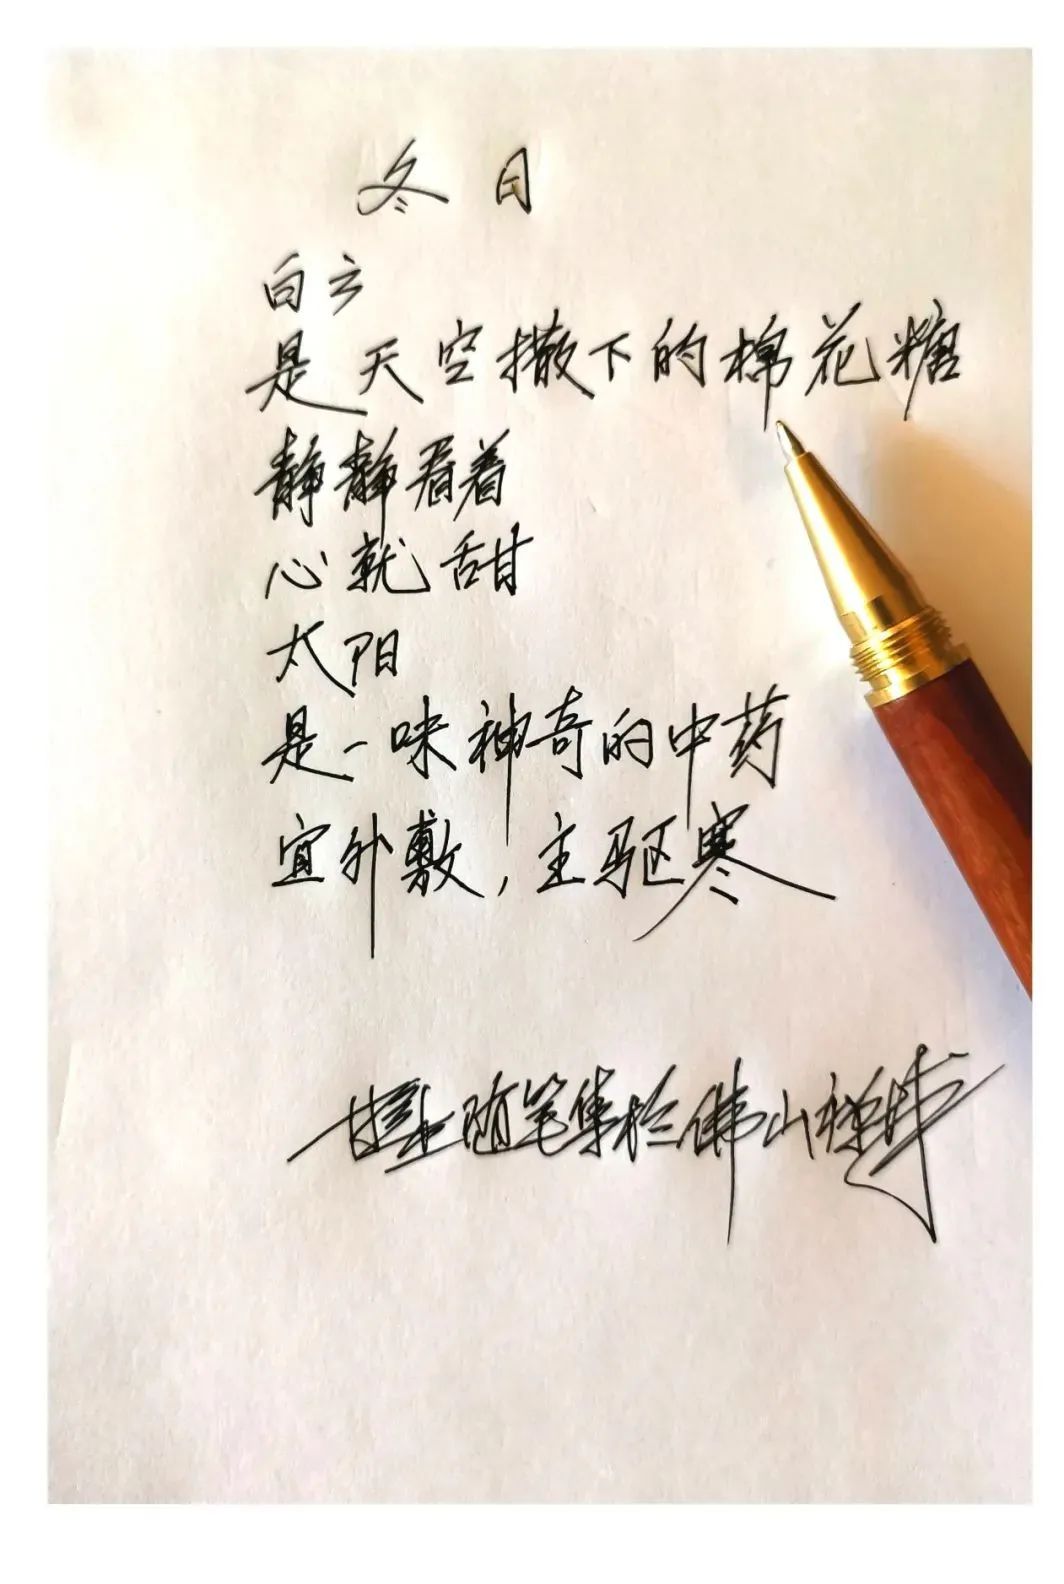 冬日
白云
是天空撒下的棉花糖
静静看着
心就甜
太阳
是一味神奇的中药
宜外敷,主驱寒
随笔集于佛山禅城